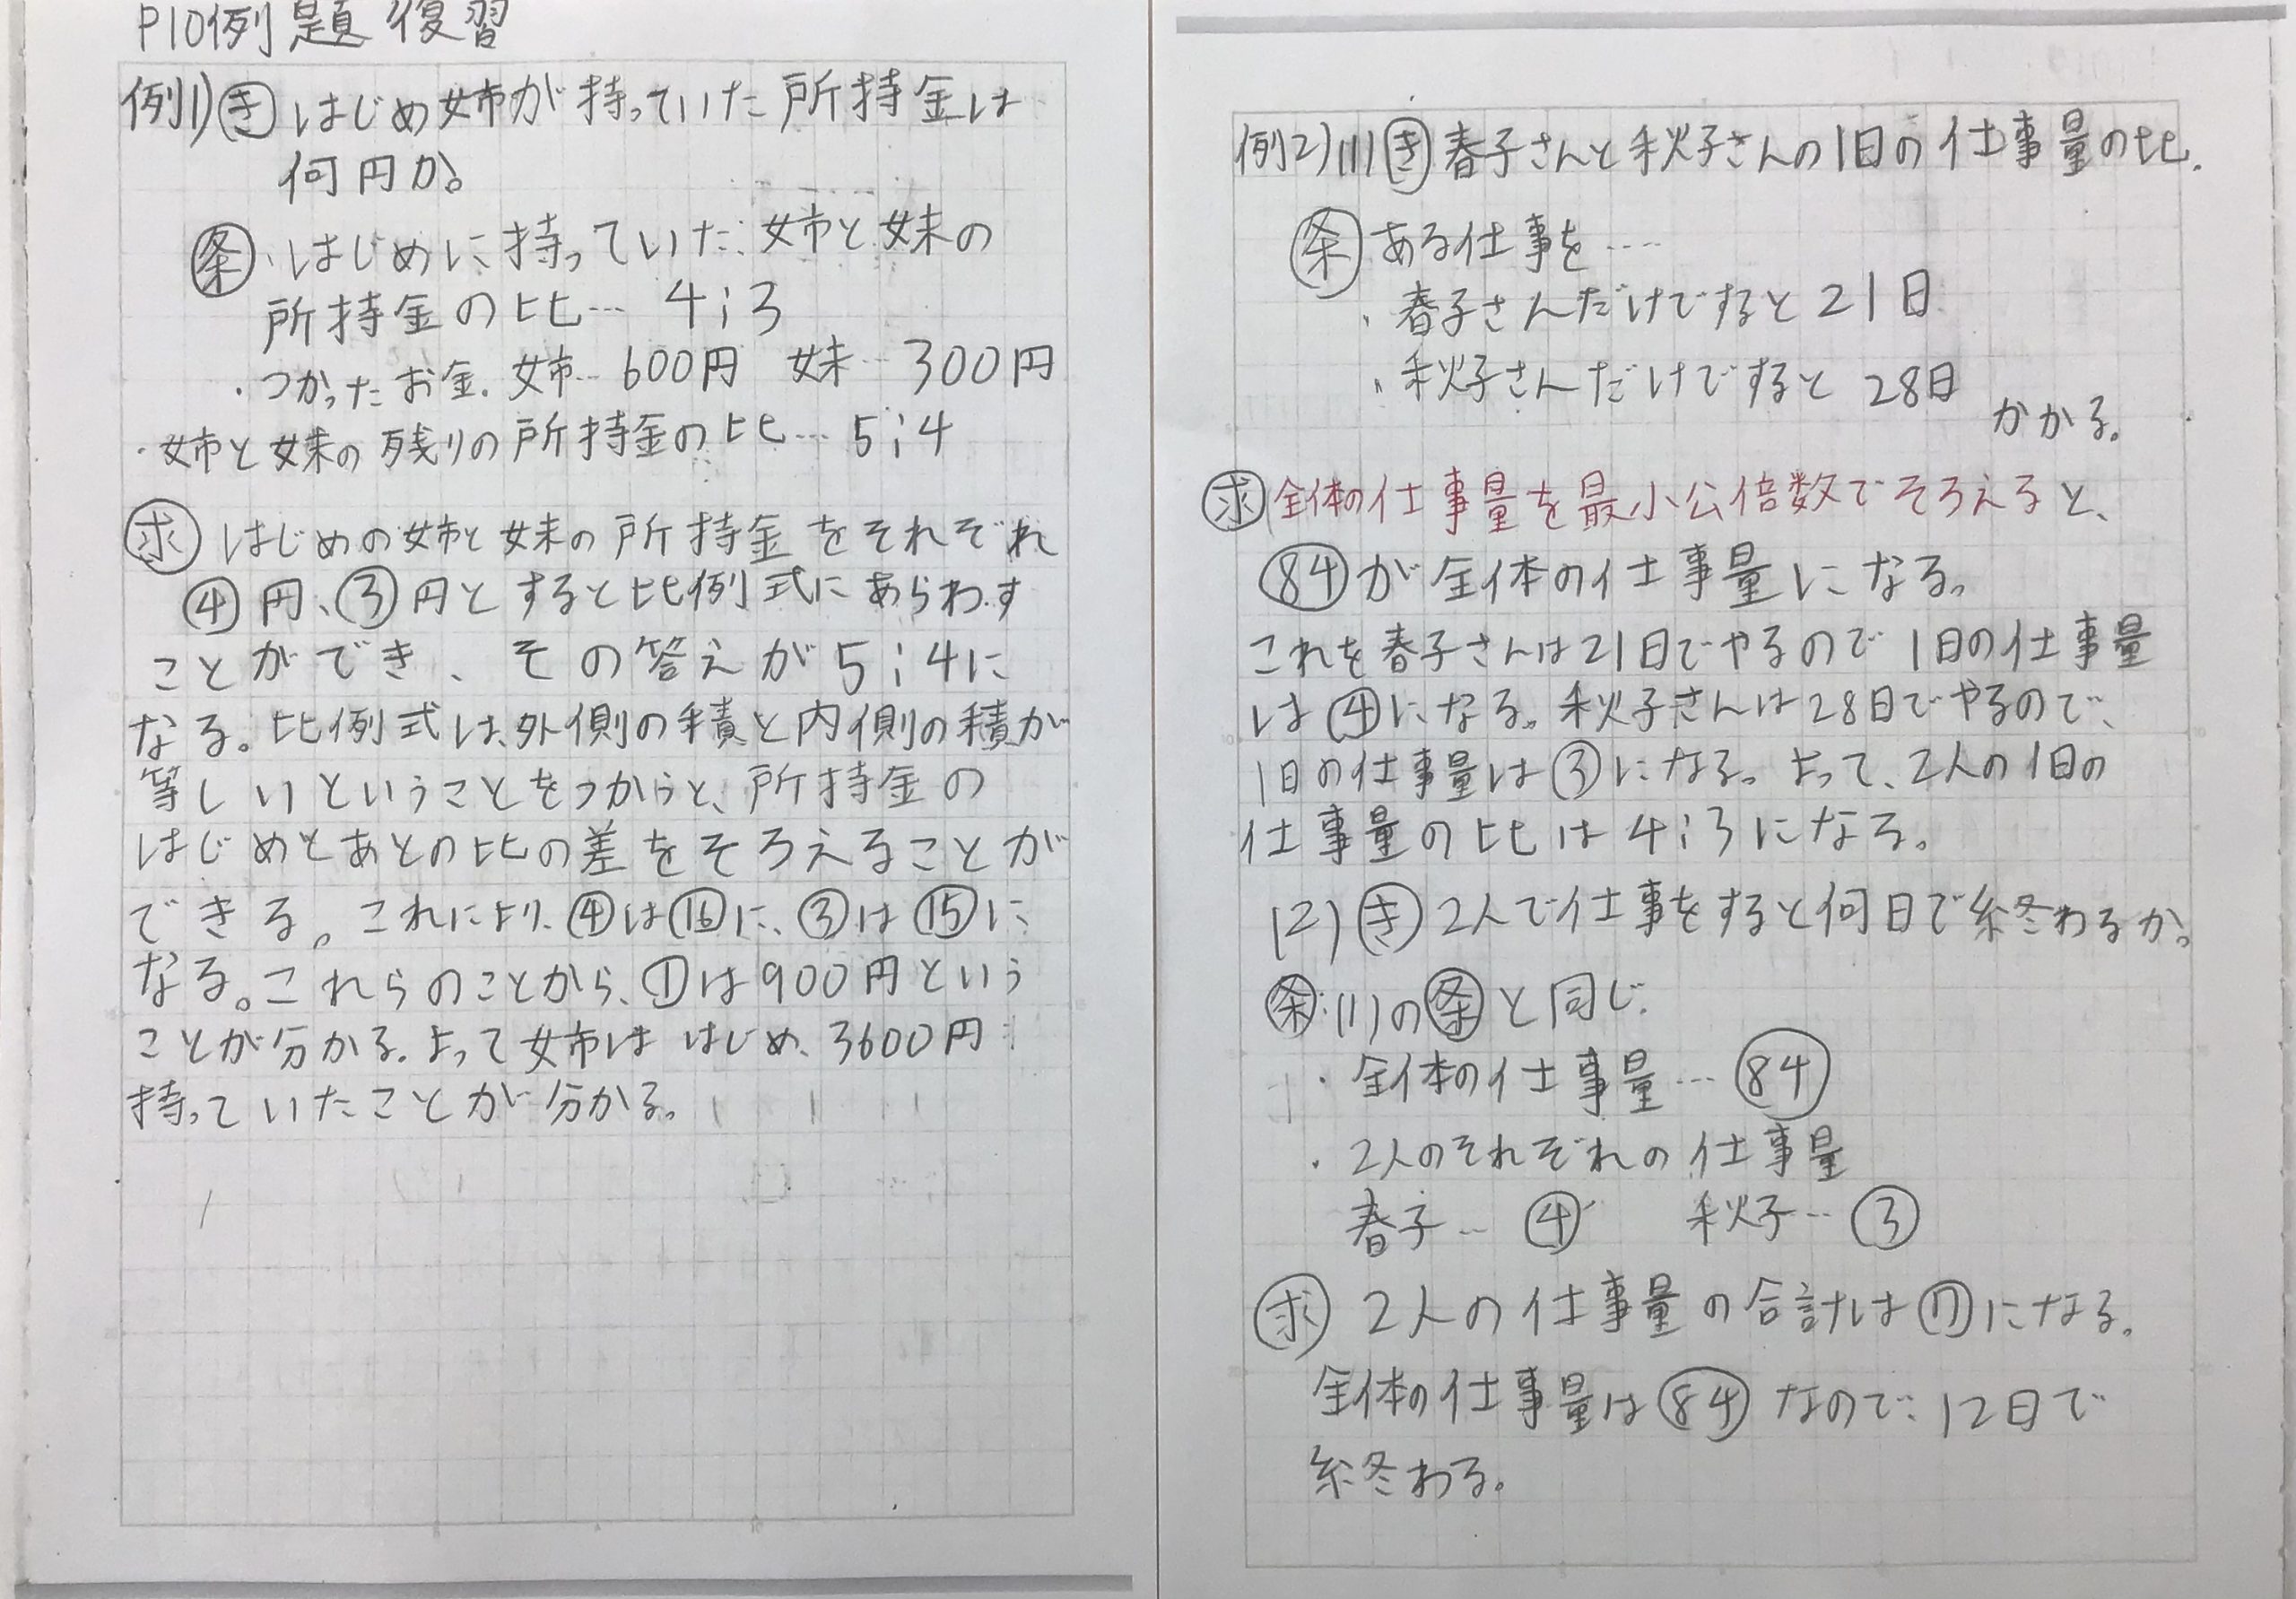 P10例題復習
例1)㋖はじめ姉が持っていた所持金は
何円か。
㊌・はじめに持っていた、姉と妹の
所持金の比… 4:3
・つかったお金、姉…600円 妹…300円
・姉と妹の残りの所持金の比…5:4
求 はじめの姉と妹の所持金をそれぞれ
④円、③円とすると比例式にあらわす
ことができ、その答えが5:4に
なる。比例式は、外側の積と内側の積が
等しいということをつかうと、所持金の
はじめとあとの比の差をそろえることが
できる。これにより、④は⑯に、③は⑮に
なる。これらのことから、①は900円という
ことが分かる。よって姉ははじめ、3600円
持っていたことが分かる。
例2)(1)㋖春子さんと秋子さんの1日の仕事量の比.
条 ある仕事を….
・春子さんだけですると21日
・秋子さんだけですると28日
かかる。
求 全体の仕事量を最小公倍数でそろえると、
㊴84が全体の仕事量になる。
これを春子さんは21日でやるので1日の仕事量
は④になる。秋子さんは28日でやるので、
1日の仕事量は③になる。よって、2人の1日の
仕事量の比は4:3になる。
(2)㋖2人で仕事をすると何日で終わるか。
条・(1)の条と同じ.
・全体の仕事量…84
・2人のそれぞれの仕事量
春子…④ 秋子…③
求 2人の仕事量の合計は⑦になる。
全体の仕事量は84なので、12日で
終わる。